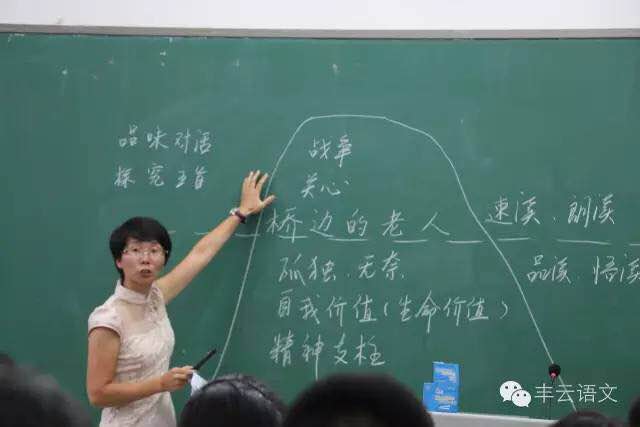 品味对话
探究主旨
战争
关心
桥边的老人
孤独、无奈
自我价值(生命价值)
精神支柱
速读、朗读
品读、悟读
丰云语文